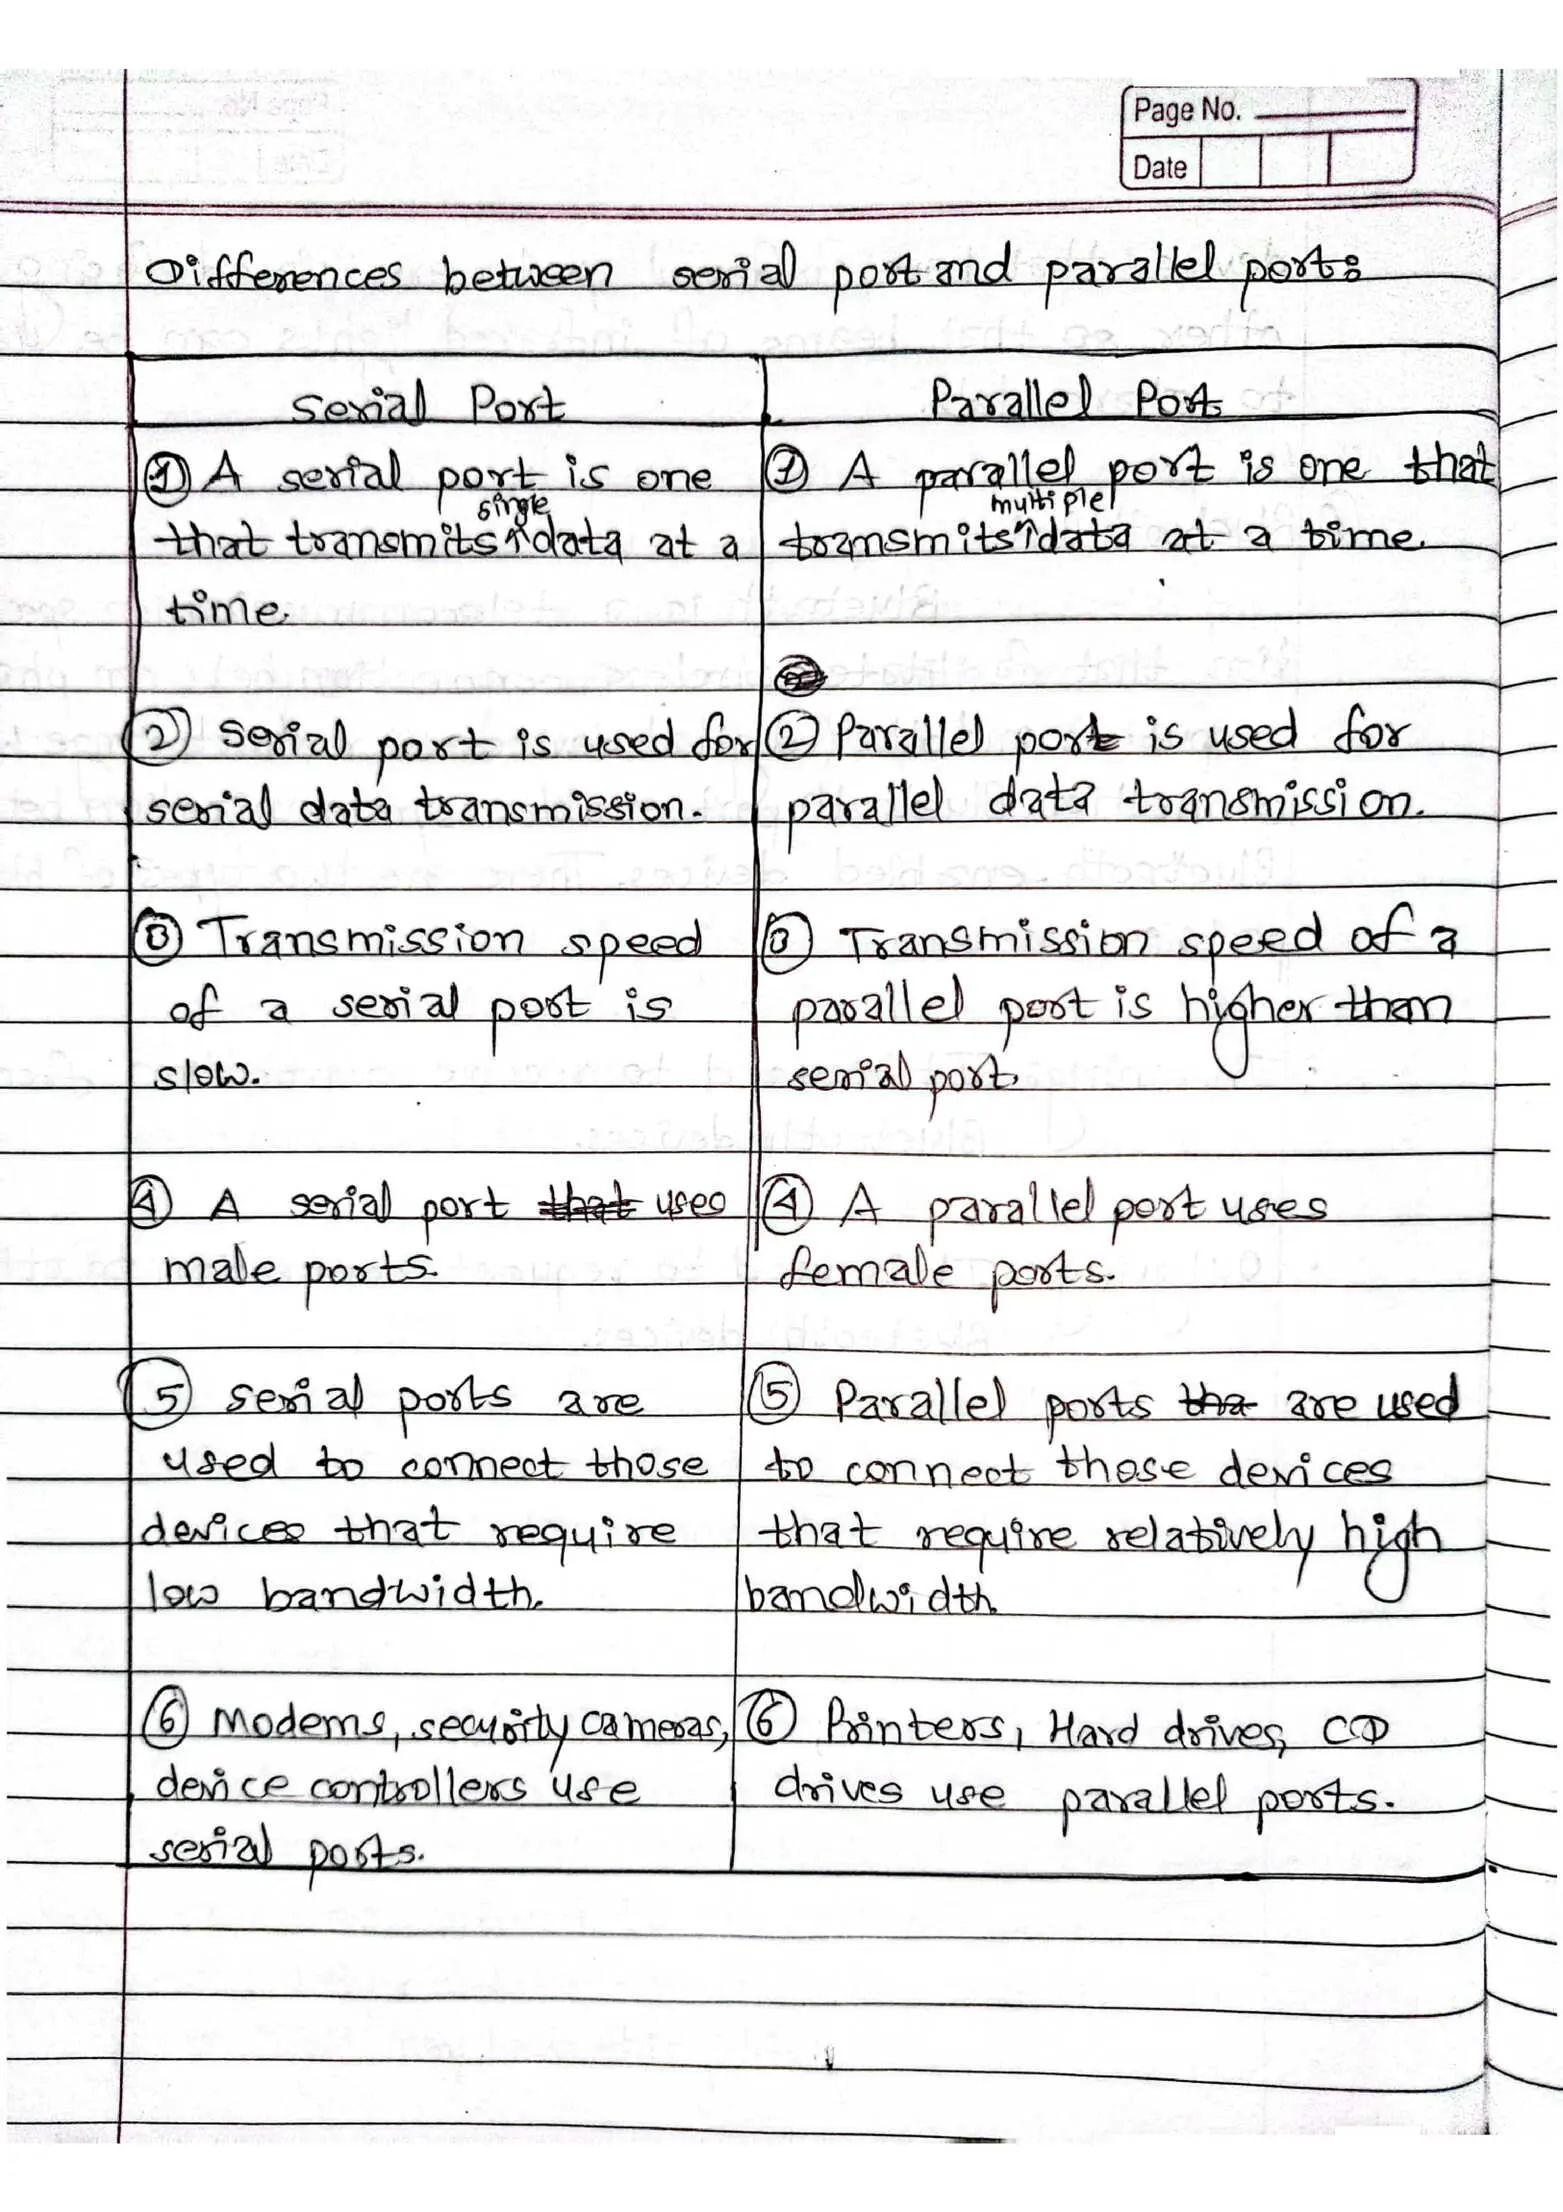 Page No.
Date
Differences between serial port and parallel port:
Serial Port
Parallel Port
① A serial port is one
that transmits single data at a
time.
① A parallel port is one that
transmits multiple data at a time.
② Serial port is used for
serial data transmission.
② Parallel port is used for
parallel data transmission.
③ Transmission speed
of a serial port is
slow.
③ Transmission speed of a
parallel port is higher than
serial port.
④ A serial port that uses
male ports.
④ A parallel port uses
female ports.
⑤ Serial ports are
used to connect those
devices that require
low bandwidth.
⑤ Parallel ports tha are used
to connect those devices
that require relatively high
bandwidth.
⑥ Modems, security cameras,
device controllers use
serial ports.
⑥ Printers, Hard drives, CD
drives use parallel ports.